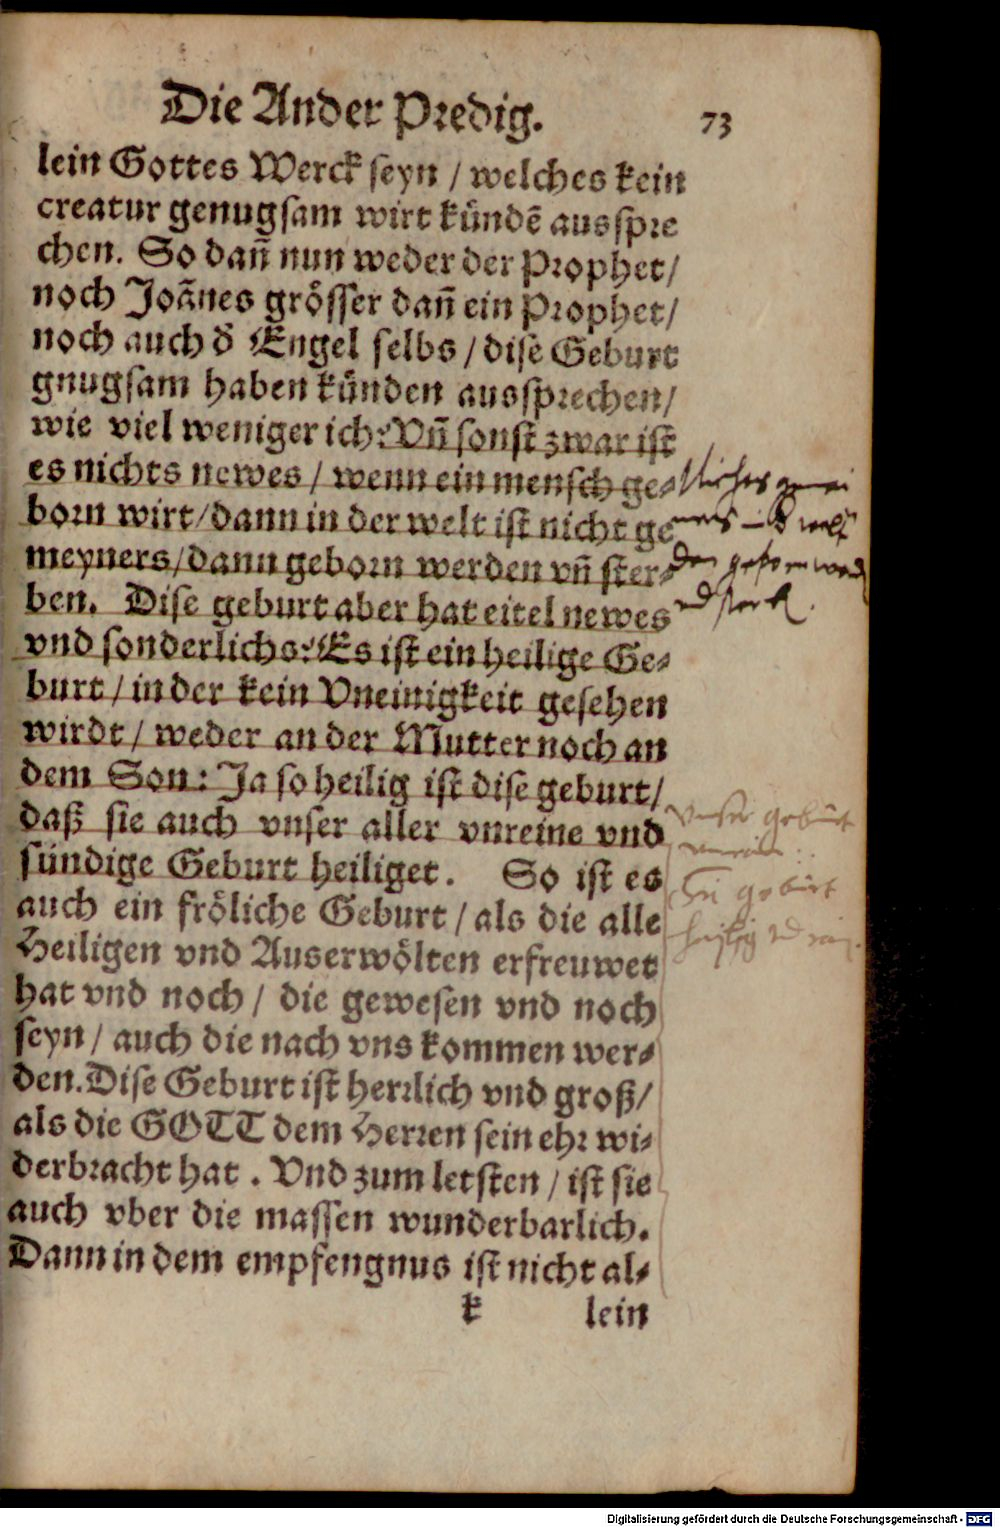 Die Ander Predig.
73
lein Gottes Werck seyn / welches kein
creatur genugsam wirt künde͂ ausspre
chen. So dan͂ nun weder der Prophet/
noch Joa͂nes grösser dan͂ ein Prophet/
noch auch d̕ Engel selbs / dise Geburt
gnugsam haben künden aussprechen/
wie viel weniger ich: Vn͂ sonst zwar ist
es nichts newes / wenn ein mensch ge⸗
born wirt / dann in der welt ist nicht ge
meyners / dann geborn werden vn͂ ster⸗
ben. Dise geburt aber hat eitel newes
vnd sonderlichs: Es ist ein heilige Ge⸗
burt / in der kein Vneinigkeit gesehen
wirdt / weder an der Mutter noch an
dem Son: Ja so heilig ist dise geburt/
daß sie auch vnser aller vnreine vnd
sündige Geburt heiliget. So ist es
auch ein fröliche Geburt / als die alle
Heiligen vnd Auserwölten erfreuwet
hat vnd noch / die gewesen vnd noch
seyn / auch die nach vns kommen wer⸗
den. Dise Geburt ist herrlich vnd groß/
als die GOTT dem Herren sein ehr wi⸗
derbracht hat. Vnd zum letsten / ist sie
auch vber die massen wunderbarlich.
Dann in dem empfengnus ist nicht al⸗
k lein
Nichts gmei
ners in d welt
den geborn werd
vnd sterb.
Vnser geburt
vnrein
geburt
heilig vnd
Digitalisierung gefördert durch die Deutsche Forschungsgemeinschaft - DFG